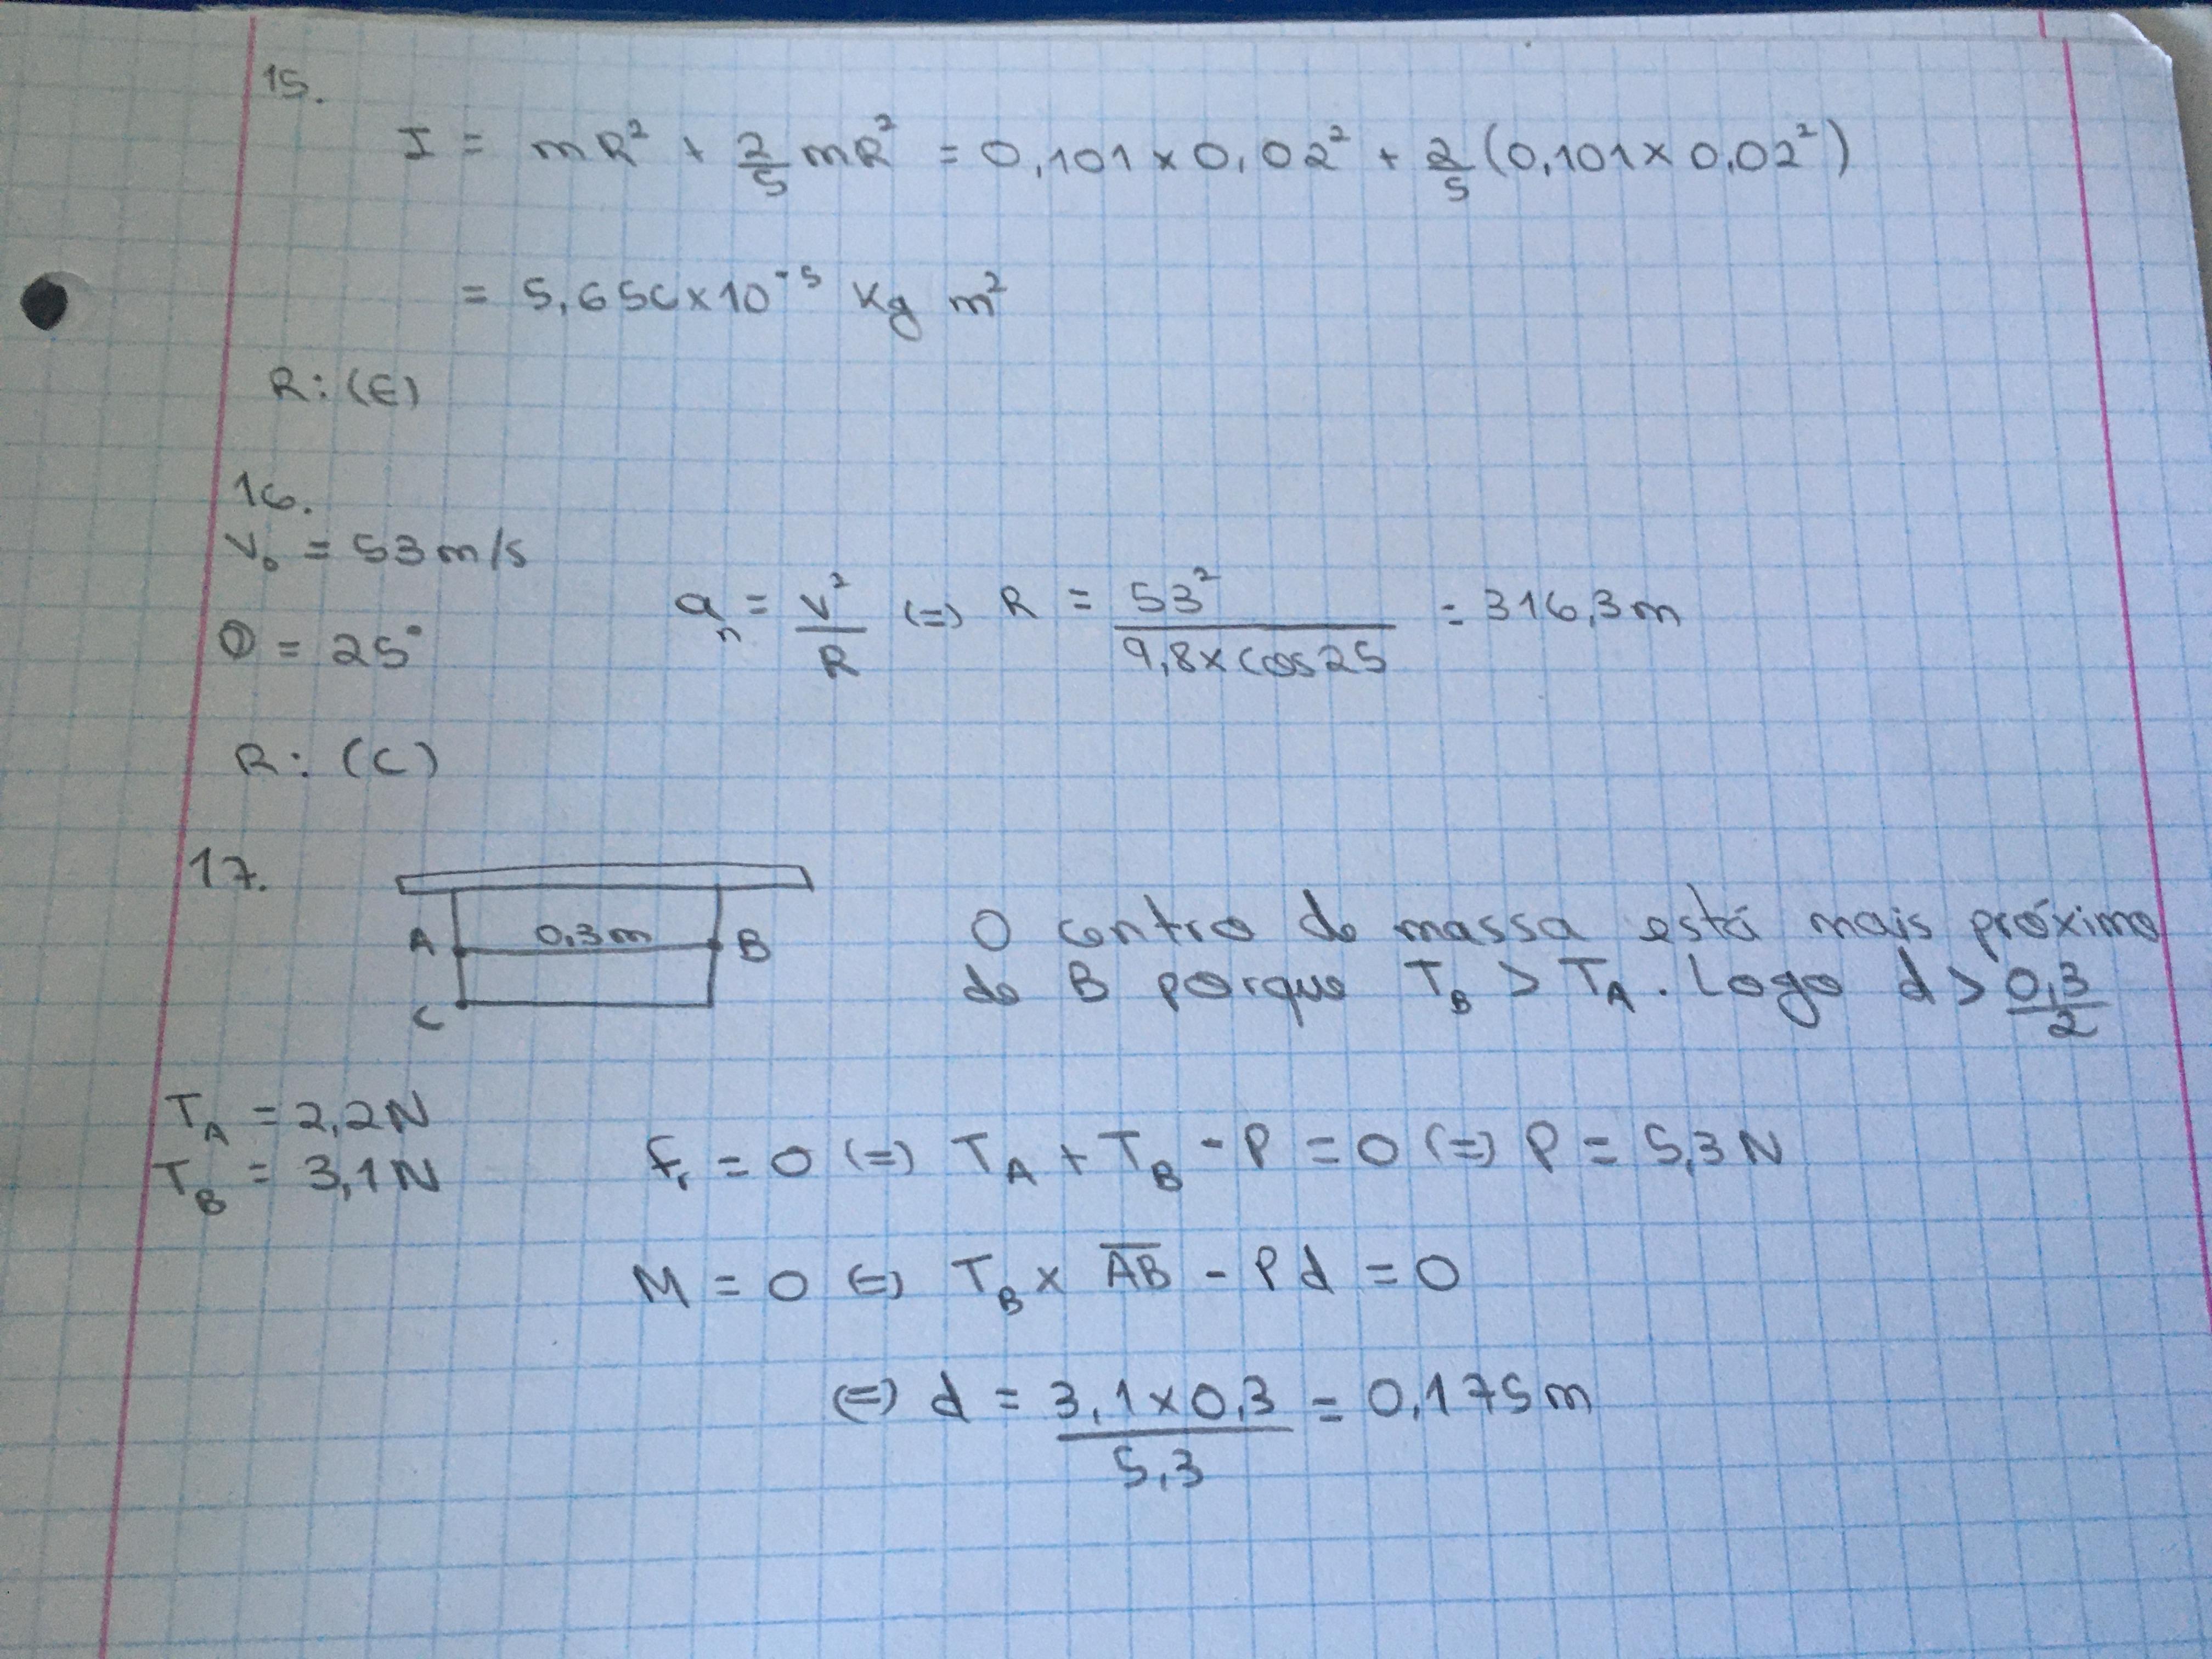 15.
I = mR² + 2/5 mR² = 0,101 × 0,02² + 2/5 (0,101 × 0,02²)
= 5,656 × 10⁻⁵ Kg m²
R: (E)
16.
V₀ = 53 m/s
θ = 25°
aₙ = v²/R (=) R = 53²/(9,8 × cos 25) = 316,3 m
R: (C)
17.
A 0,3 m B
C
O centro de massa está mais próximo
de B porque T_B > T_A. Logo d > 0,3/2
T_A = 2,2 N
T_B = 3,1 N
Fᵣ = 0 (=) T_A + T_B - P = 0 (=) P = 5,3 N
M = 0 (=) T_B × A̅B̅ - Pd = 0
(=) d = 3,1 × 0,3/5,3 = 0,175 m